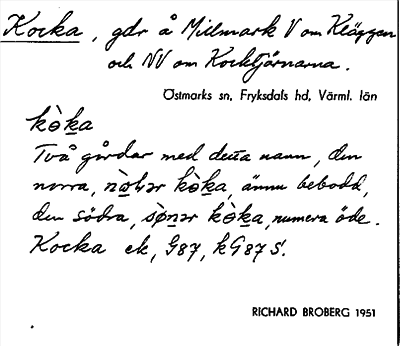 Kocka, gdr å Milmark V om Kläggen
och NV om Kocktjärnarna.
Östmarks sn, Fryksdals hd, Värml. län
kò̱ka
Två gårdar med detta namn, den
norra, kò̱ka, ännu bebodd,
den södra, kò̱ka, numera öde.
Kocka ek, G87, k G87 s.
RICHARD BROBERG 1951